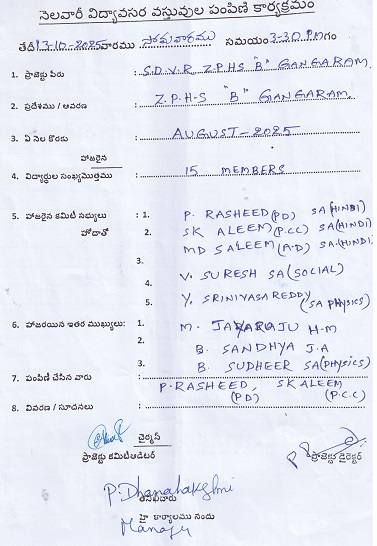 నెలవారీ విద్యావసర వస్తువుల పంపిణి కార్యక్రమం
తేది 13-10-2025 వారము సోమవారము సమయం 3-30 P.M గం
1. ప్రాజెక్టు పేరు : S.D.V.R Z.P.H.S "B" GANGARAM.
2. ప్రదేశము / ఆవరణ : Z.P.H-S "B" GANGARAM.
3. ఏ నెల కొరకు : AUGUST-2025
హాజరైన
4. విద్యార్థుల సంఖ్యమొత్తము : 15 MEMBERS
5. హాజరైన కమిటి సభ్యులు : 1. P. RASHEED (PD) SA (HINDI)
హోదాతో 2. SK ALEEM (P.CC) SA (HINDI)
MD SALEEM (A.D) SA (HINDI)
3.
4. V. SURESH SA (SOCIAL)
5. Y. SRINIVASA REDDY (SA PHYSICS)
6. హాజరయిన ఇతర ముఖ్యులు: 1. M. JAYARAJU H.M
2. B. SANDHYA J.A
3. B. SUDHEER SA (PHYSICS)
7. పంపిణీ చేసిన వారు : P. RASHEED, SK ALEEM
(PD) (P.C.C)
8. వివరణ / సూచనలు :
చైర్మన్
ప్రాజెక్టు కమిటిఆడిటర్ ప్రాజెక్టు డైరెక్టర్
P. Dhanalakshmi
తనిఖీదారు
హై కార్యాలము నందు
Manager